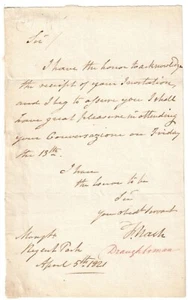 Sir
I have the honor to acknowledge
the receipt of your Invitation,
and I beg to assure you I shall
have great pleasure in attending
your Conversazione on Friday
the 13th.
I have
the honor to be
Sir
your obedt Servant
Nash
Draughtsman
Regents Park
April 5th 1821